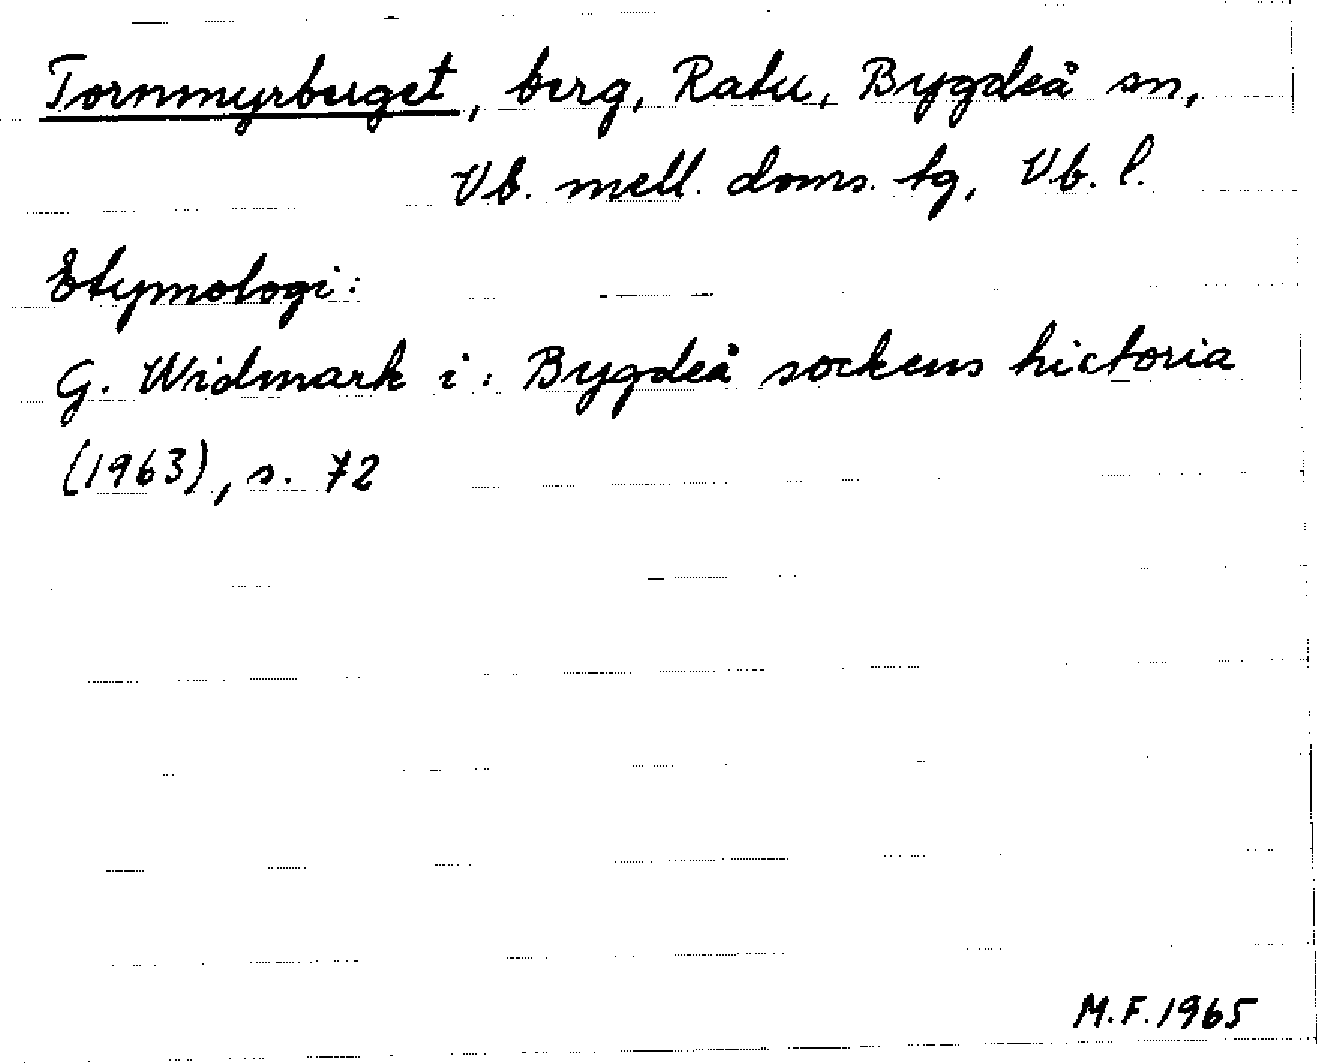 Tornmyrberget, berg, Ratu, Bygdeå sn,
Vb. mell. doms. tg, Vb. l.
Etymologi:
G. Widmark i: Bygdeå sockens historia
(1963), s. 72
M.F. 1965